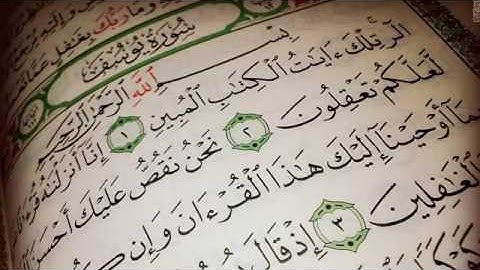 وَمَا رَبُّكَ بِغَٰفِلٍ عَمَّا
سُورَةُ يُوسُفَ
بِسْمِ ٱللَّهِ ٱلرَّحْمَٰنِ ٱلرَّحِيمِ
الٓرۚ تِلْكَ ءَايَٰتُ ٱلْكِتَٰبِ ٱلْمُبِينِ ١ إِنَّآ أَنزَلْنَٰهُ
لَّعَلَّكُمْ تَعْقِلُونَ ٢ نَحْنُ نَقُصُّ عَلَيْكَ أَحْسَنَ
بِمَآ أَوْحَيْنَآ إِلَيْكَ هَٰذَا ٱلْقُرْءَانَ وَإِن
ٱلْغَٰفِلِينَ ٣ إِذْ قَالَ